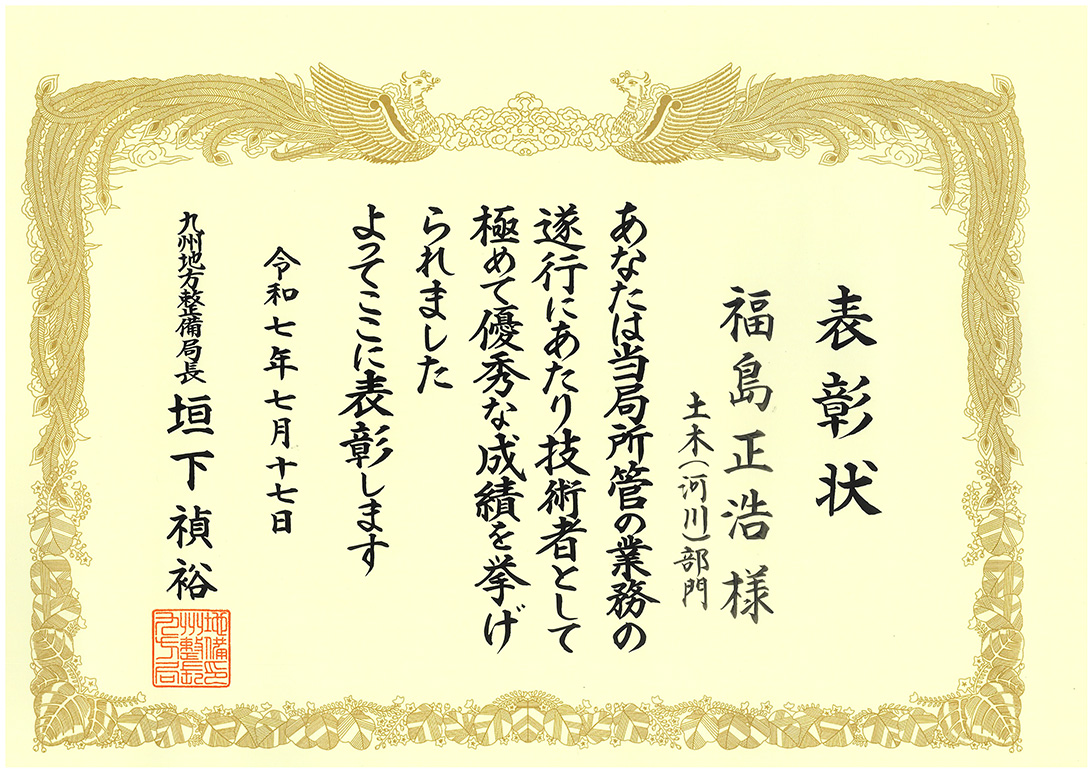 表彰状
福島正浩様
土木(河川)部門
あなたは当局所管の業務の
遂行にあたり技術者として
極めて優秀な成績を挙げ
られました
よってここに表彰します
令和七年七月十七日
九州地方整備局長
垣下禎裕